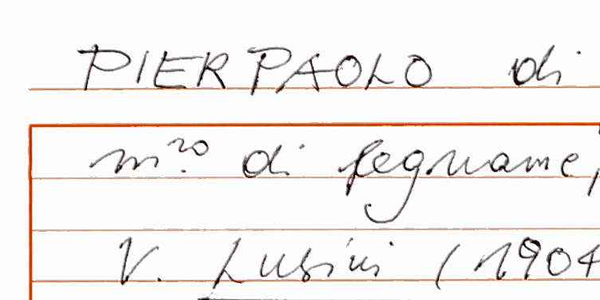 PIER PAOLO di
m.ro di legname,
V. Lusini (1904